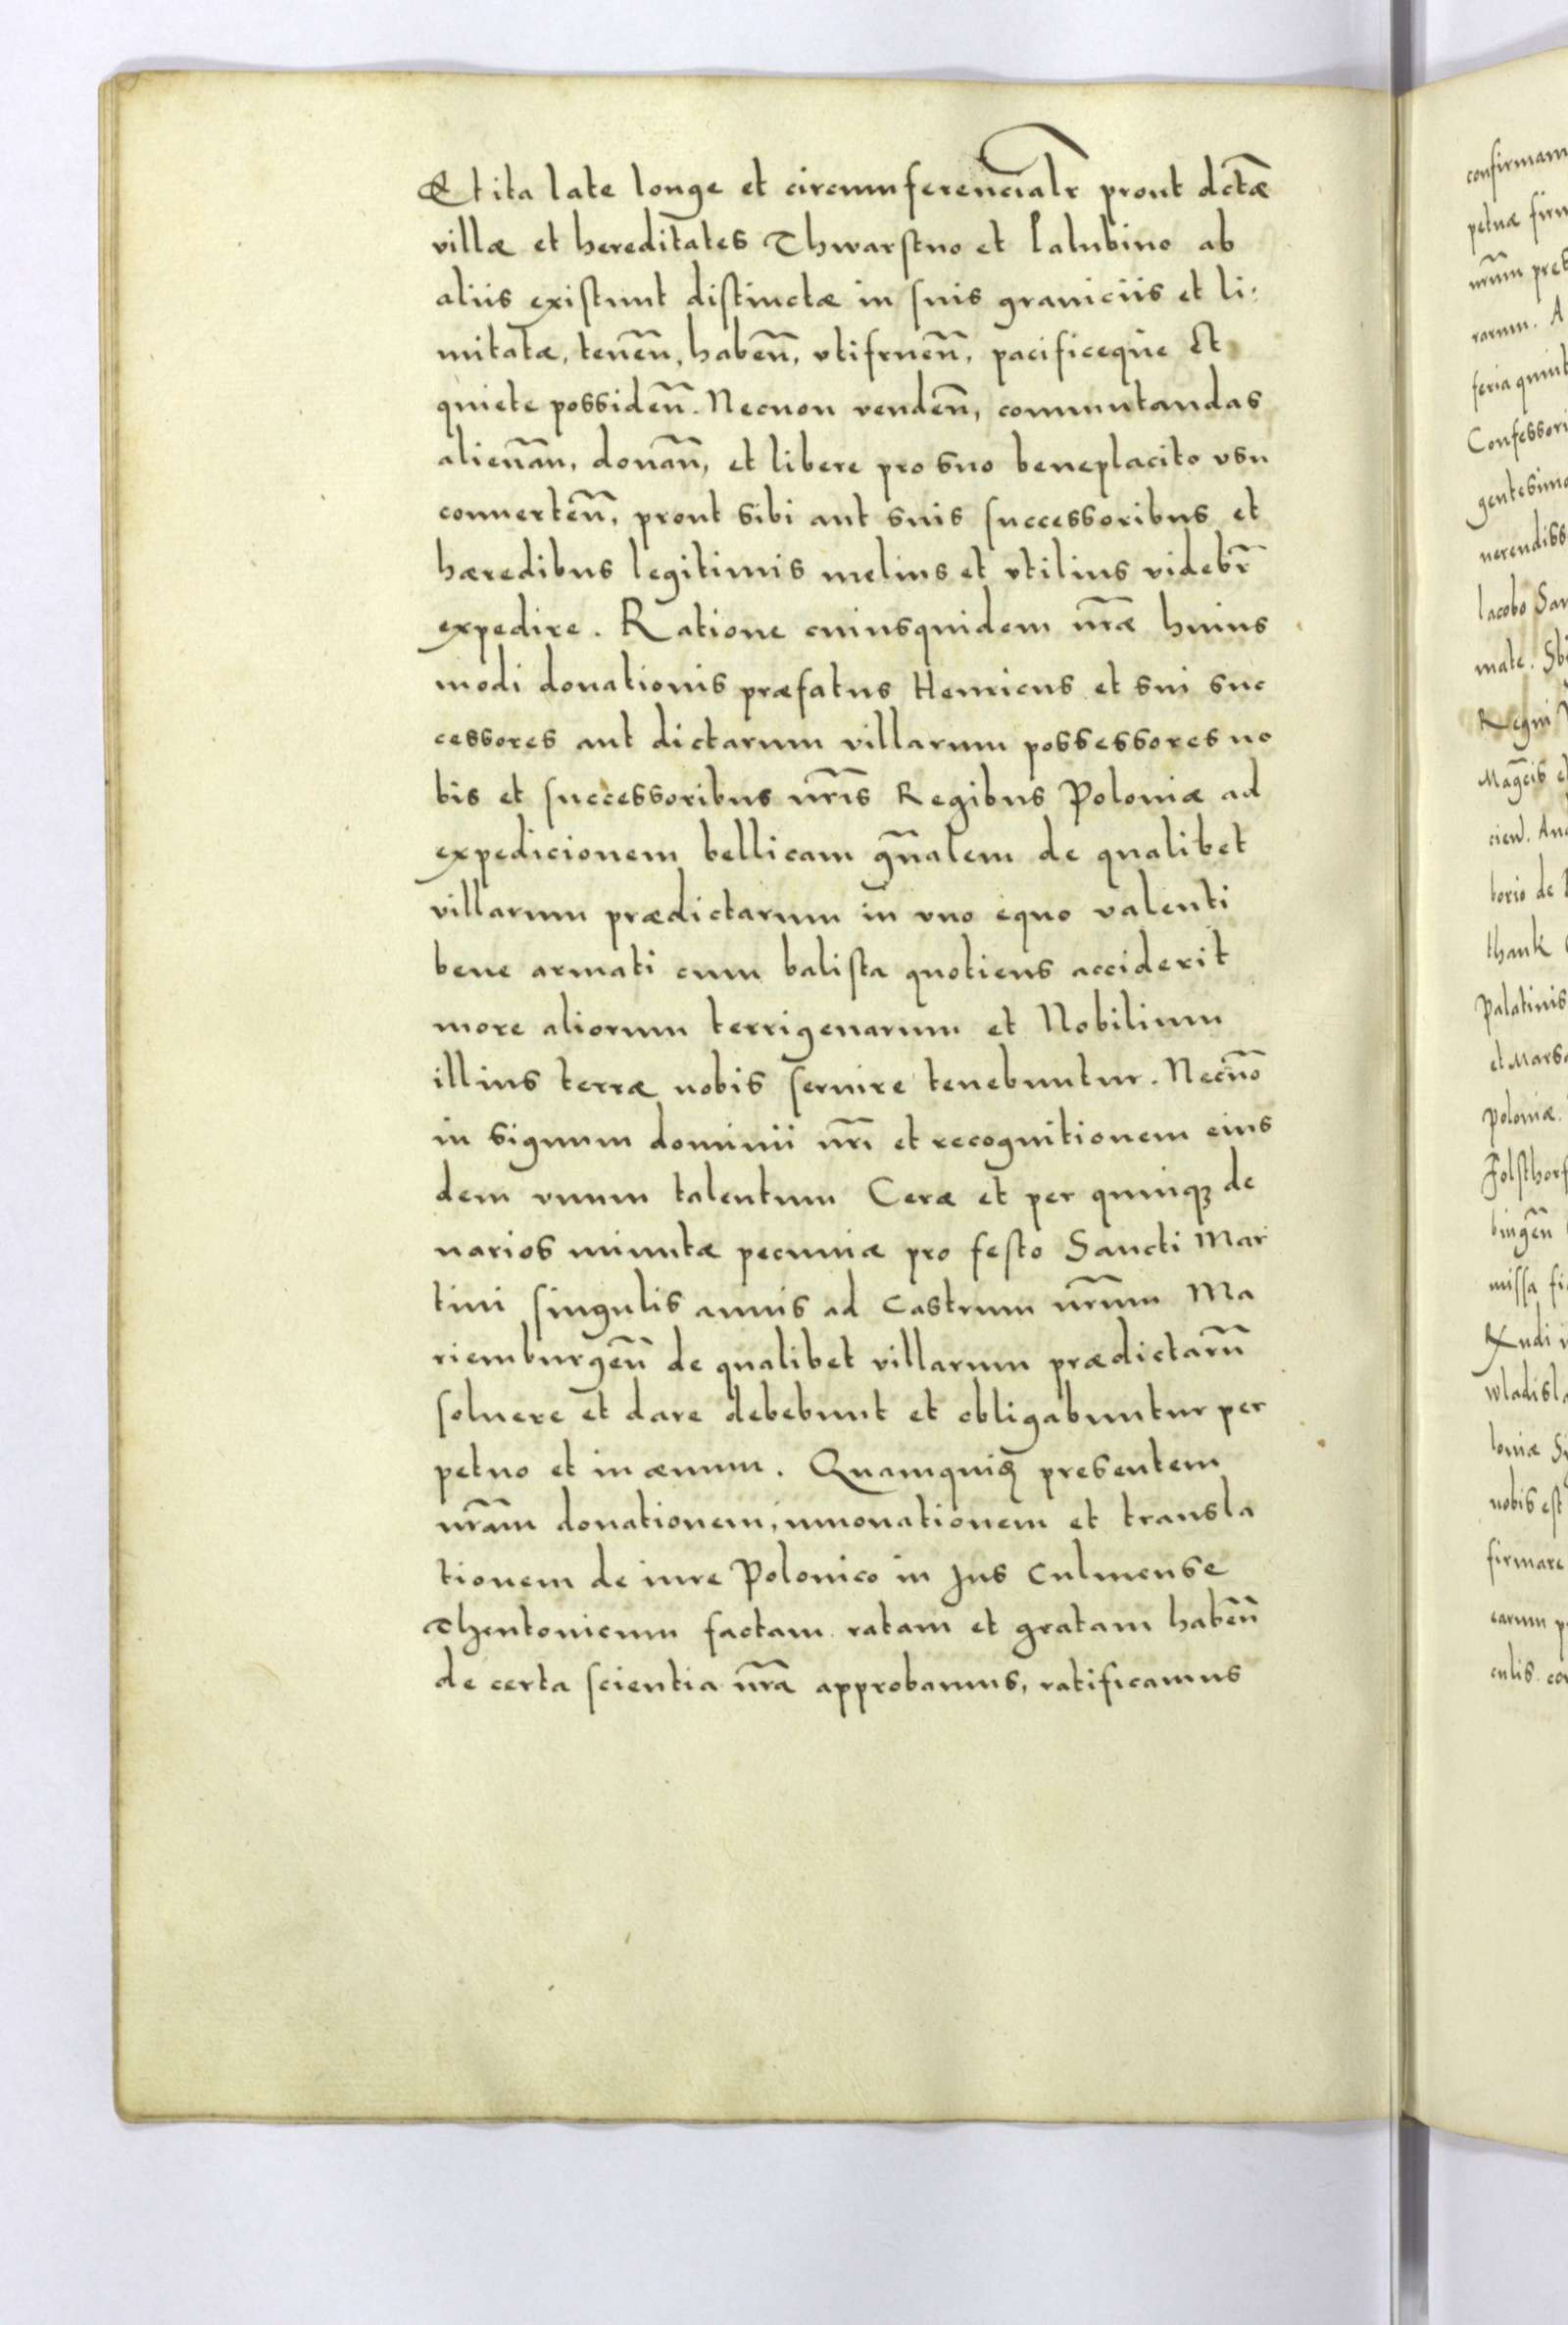 Et ita late longe et circumferencialr prout dctæ
villæ et hereditates Thwarstno et Lalubino ab
aliis existunt distinctæ in suis graniciis et li:
mitatæ, teneñ, habeñ, vtifrueñ, pacificeque Et
quiete possideñ. Necnon vendeñ, commutandas
alienañ, donañ, et libere pro suo beneplacito vsu
conuerteñ, prout sibi aut suis successoribus et
hæredibus legitimis melius et vtilius videbr̃
expedire. Ratione cuiusquidem nr̃æ huius
modi donationis præfatus Henricus et sui suc
cessores aut dictarum villarum possessores no
bis et successoribus nr̃is Regibus Poloniæ ad
expedicionem bellicam gñalem de qualibet
villarum prædictarum in vno equo valenti
bene armati cum balista quotiens acciderit
more aliorum terrigenarum et Nobilium
illius terræ nobis seruire tenebuntur. Necño
in signum dominii nr̃i et recognitionem eius
dem vnum talentum Ceræ et per quinqꝫ de
narios minutæ pecuniæ pro festo Sancti Mar
tini singulis annis ad Castrum nr̃um Ma
riemburgeñ de qualibet villarum prædictarũ
soluere et dare debebunt et obligabuntur per
petuo et in æuum. Quamquiꝫ presentem
nr̃am donationem, innouationem et transla
tionem de iure Polonico in Jus Culmense
Theutonicum factam ratam et gratam habeñ
de certa scientia nr̃a approbamus, ratificamus
confirmam
petuæ firm
nr̃um pres
rarum. A
feria quint
Confessori
gentesimo
uerendiss
Iacobo San
mate. Sbi
Regni
Magc̃is e
cien̄. And
borio de
thank
Palatinis
et Mars
Poloniæ.
bingeñ
missa fi
wladisla
loniæ Si
nobis est
firmare
earum p
culis. con